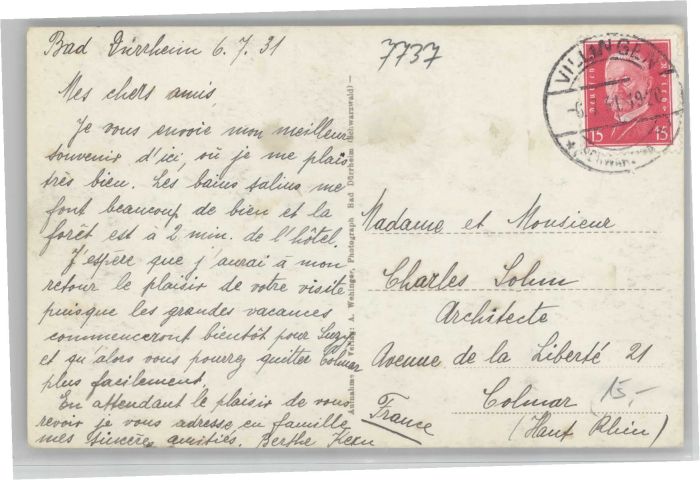 Bad Dürrheim 6.7.31
7737
Mes chers amis,
Je vous envoie mon meilleur
souvenir d'ici, où je me plais
très bien. Les bains salins me
font beaucoup de bien et la
forêt est à 2 min. de l'hôtel.
J'espère que j'aurai à mon
retour le plaisir de votre visite
puisque les grandes vacances
commenceront bientôt pour Suzy
et qu'alors vous pourrez quitter Colmar
plus facilement.
En attendant le plaisir de vous
revoir je vous adresse, en famille
mes sincères amitiés. Berthe Kern
Aufnahme u. Verlag: A. Wehinger, Photograph Bad Dürrheim (Schwarzwald)
VILLINGEN
DEUTSCHES REICH
15 15
Madame et Monsieur
Charles Sohm
Architecte
Avenue de la Liberté 21
Colmar
(Haut Rhin)
France
15,-